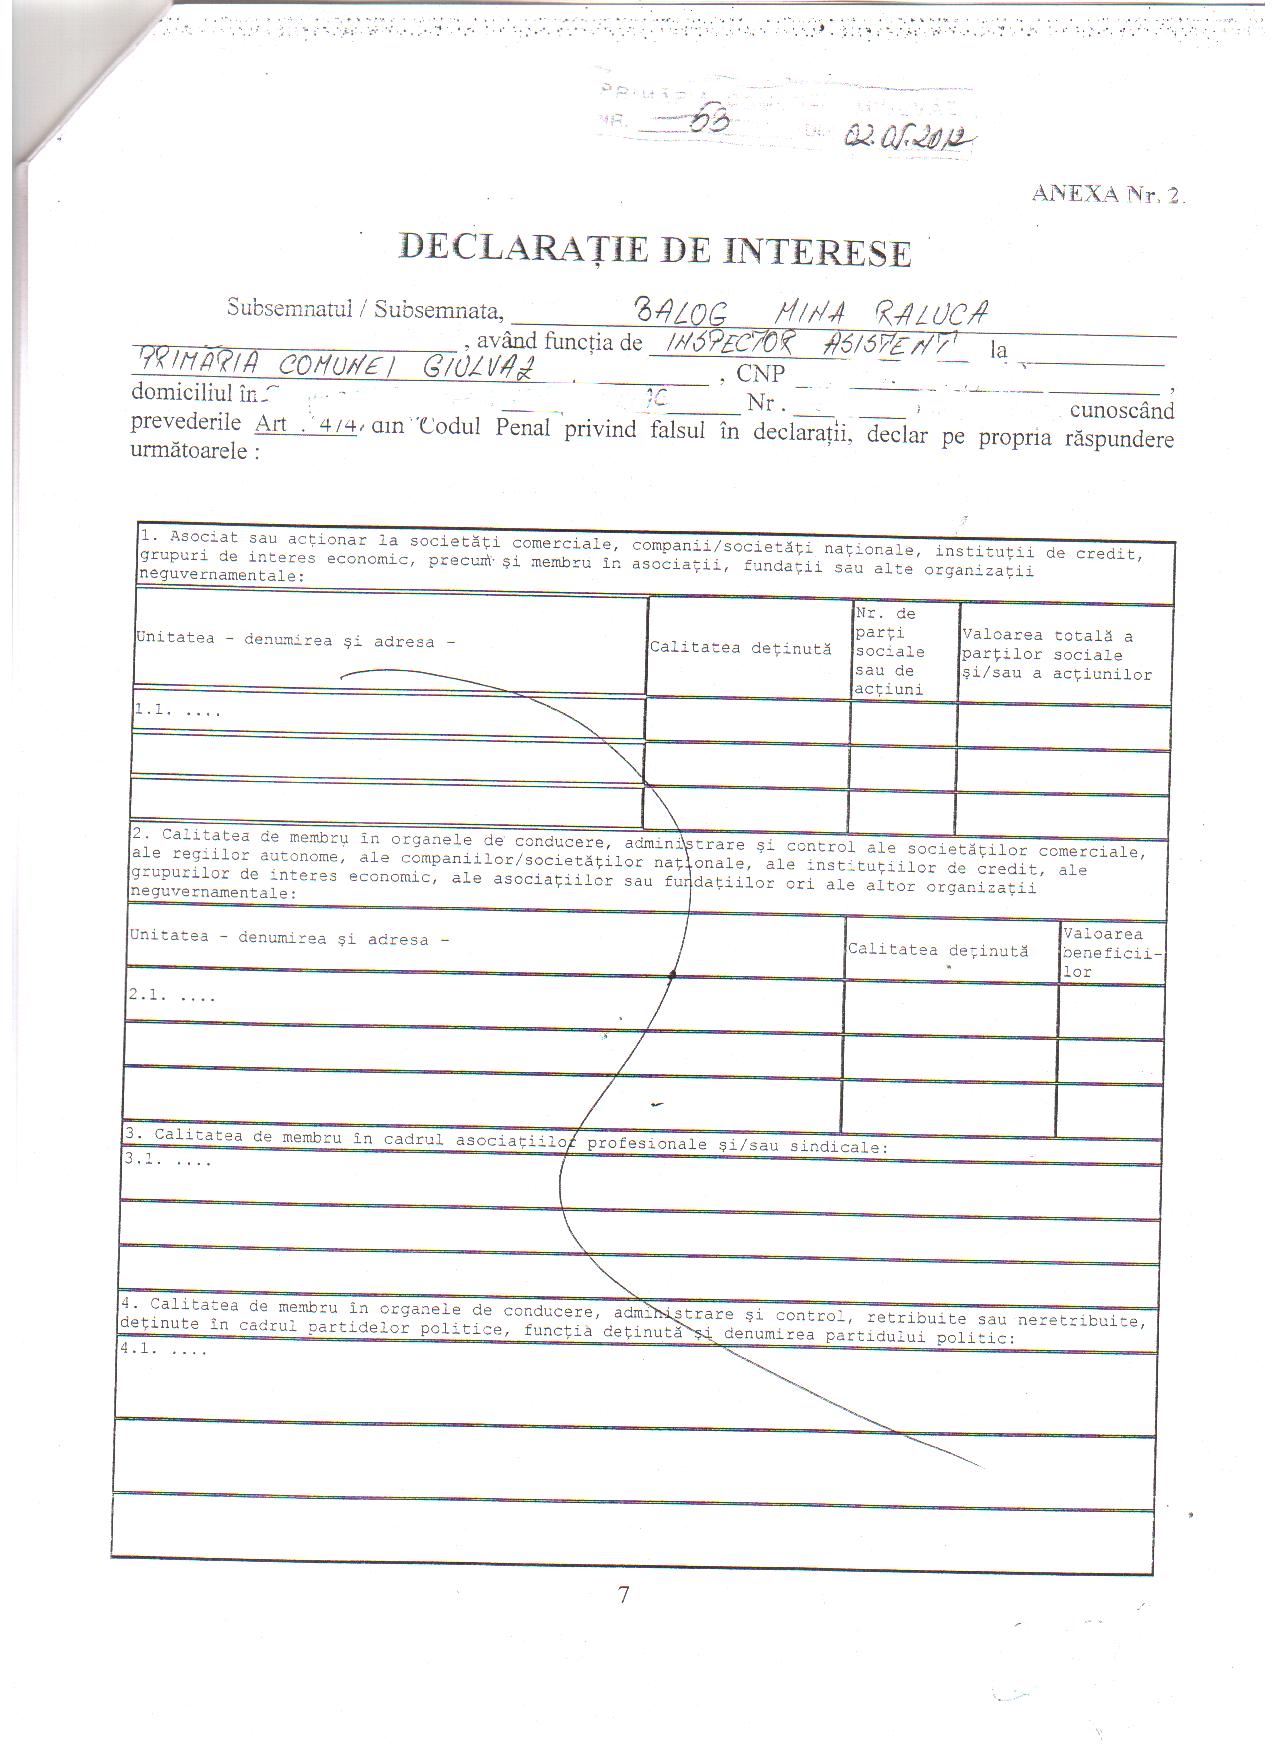 PRIMĂRIA
NR. 53 02.05.2012
ANEXA Nr. 2.
DECLARAŢIE DE INTERESE
Subsemnatul / Subsemnata, BALOG MINA RALUCA
, având funcţia de INSPECTOR ASISTENT la
PRIMĂRIA COMUNEI GIULVAZ , CNP ,
domiciliul în Nr . cunoscând
prevederile Art . 4/4 din Codul Penal privind falsul în declaraţii, declar pe propria răspundere
următoarele :
1. Asociat sau acţionar la societăţi comerciale, companii/societăţi naţionale, instituţii de credit,
grupuri de interes economic, precum şi membru în asociaţii, fundaţii sau alte organizaţii
neguvernamentale:
Unitatea - denumirea şi adresa -
Calitatea deţinută
Nr. de
parţi
sociale
sau de
acţiuni
Valoarea totală a
parţilor sociale
şi/sau a acţiunilor
1.1. ....
2. Calitatea de membru în organele de conducere, administrare şi control ale societăţilor comerciale,
ale regiilor autonome, ale companiilor/societăţilor naţionale, ale instituţiilor de credit, ale
grupurilor de interes economic, ale asociaţiilor sau fundaţiilor ori ale altor organizaţii
neguvernamentale:
Unitatea - denumirea şi adresa -
Calitatea deţinută
Valoarea
beneficii-
lor
2.1. ....
3. Calitatea de membru în cadrul asociaţiilor profesionale şi/sau sindicale:
3.1. ....
4. Calitatea de membru în organele de conducere, administrare şi control, retribuite sau neretribuite,
deţinute în cadrul partidelor politice, funcţia deţinută şi denumirea partidului politic:
4.1. ....
7